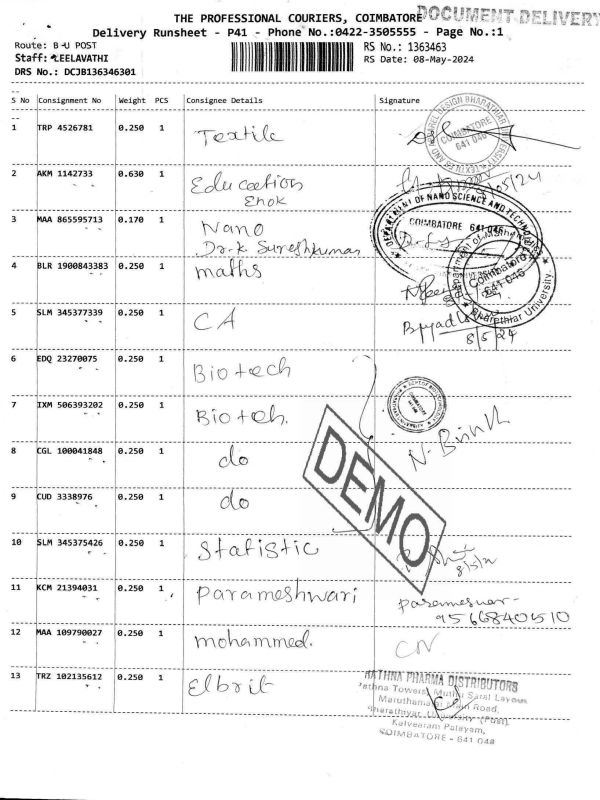 THE PROFESSIONAL COURIERS, COIMBATORE
DOCUMENT DELIVERY
Delivery Runsheet - P41 - Phone No.:0422-3505555 - Page No.:1
Route: B-U POST
RS No.: 1363463
Staff: LEELAVATHI
RS Date: 08-May-2024
DRS No.: DCJB136346301
S No Consignment No Weight PCS Consignee Details Signature
1 TRP 4526781 0.250 1 Textile
COIMBATORE
641 046
2 AKM 1142733 0.630 1 Education
Enok
3 MAA 865595713 0.170 1 Nano
Dr.K Sureshkumar
DEPARTMENT OF NANO SCIENCE AND TECHNOLOGY
COIMBATORE 641 046
4 BLR 1900843383 0.250 1 maths
Coimbatore
641 046
Bharathiar University
5 SLM 345377339 0.250 1 CA
8/5/24
6 EDQ 23270075 0.250 1 Biotech
7 IXM 506393202 0.250 1 Biotech.
8 CGL 100041848 0.250 1 do
9 CUD 3338976 0.250 1 do
DEMO
10 SLM 345375426 0.250 1 Statistic
11 KCM 21394031 0.250 1 Parameshwari
Parameswar-
9566840510
12 MAA 109790027 0.250 1 mohammed.
CN
13 TRZ 102135612 0.250 1 Elbrit
RATHNA PHARMA DISTRIBUTORS
Rathna Towers, Muthu Saral Layout
Maruthamalai Main Road,
Bharathiyar University (Post),
Kalveeram Palayam,
COIMBATORE - 641 046